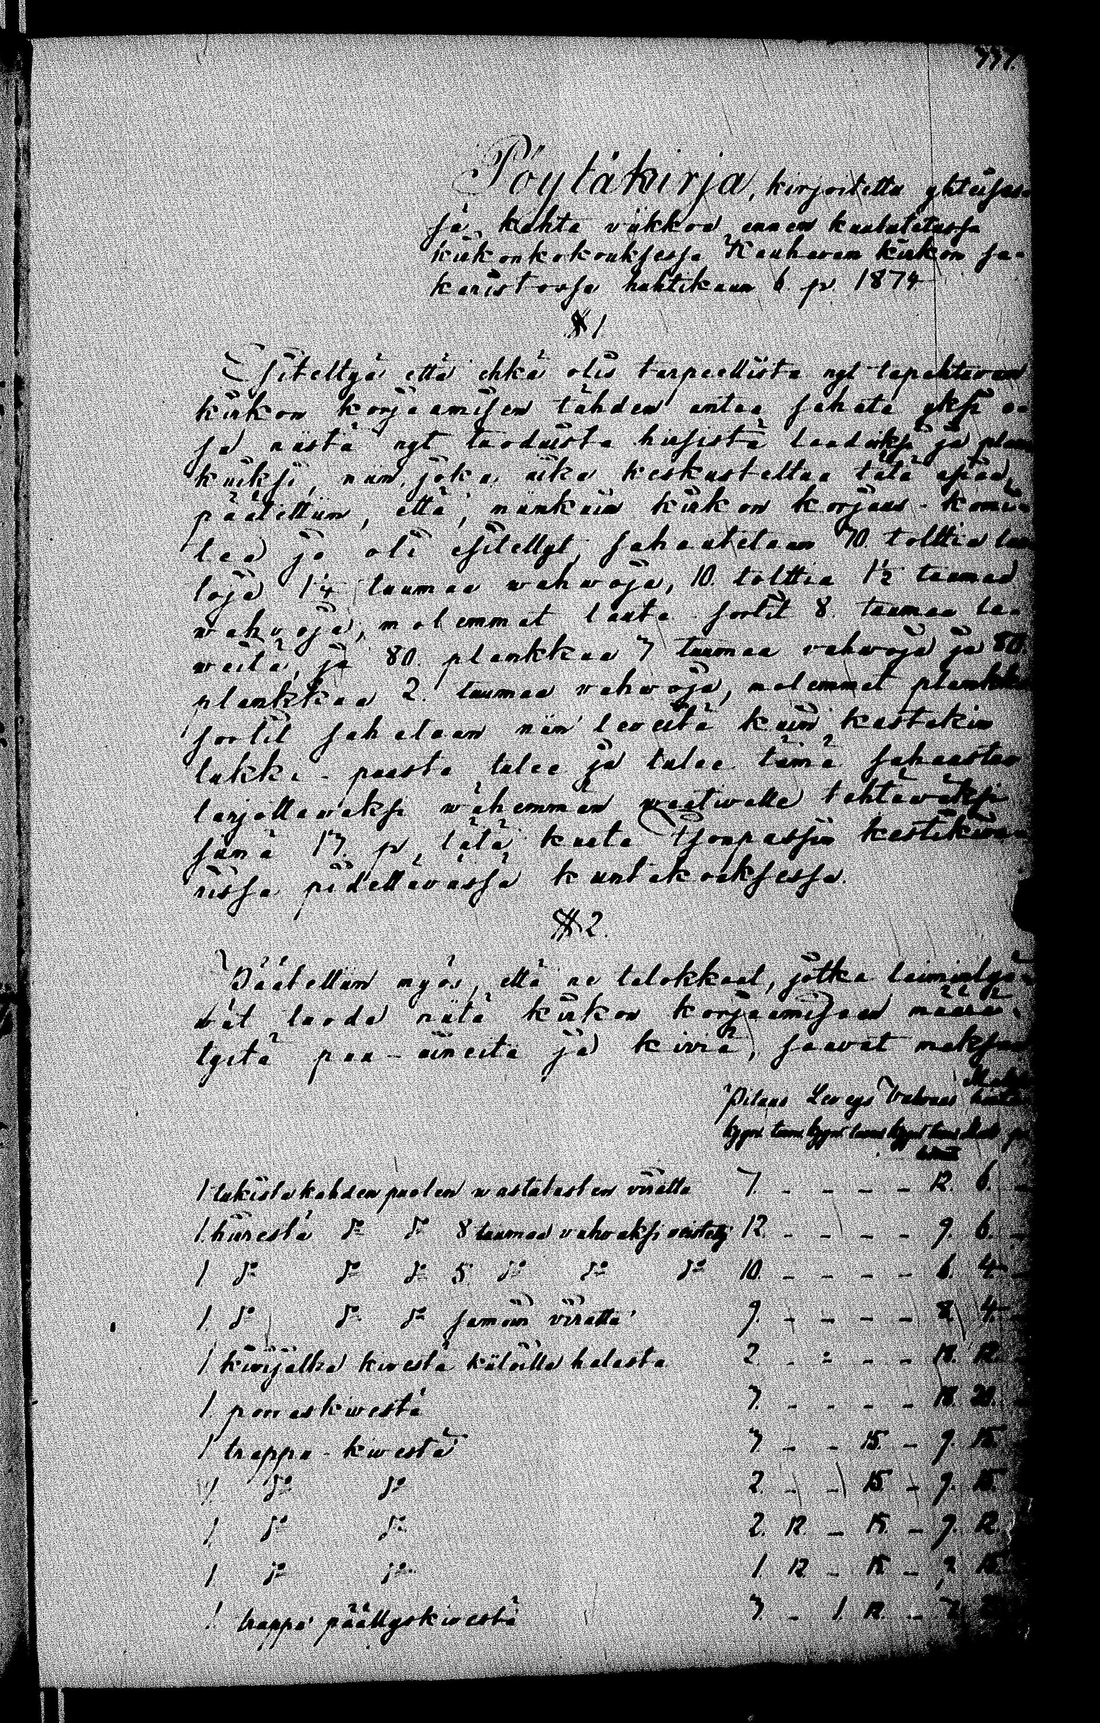 Pöytäkirja, kirjoitettu yhteises-
sä kahta viikkoa ennen kuulutetussa
kirkonkokouksessa Kauhavan kirkon sa-
karistossa huhtikuun 6. p. 1874
§ 1
Esiteltyä että ehkä olis tarpeellista nyt tapahtuvan
kirkon korjaamisen tähden antaa sahata yksi o-
sa niistä nyt taoduista hirsistä laudoiksi ja plan
kuiksi, niin joka aika keskusteltua tätä asiaa,
päätettiin, että, niinkuin kirkon korjaus-komi-
tea jo oli esitellyt, sahautetaan 70. tolttia lau
toja 1¼ tuumaa wahwoja, 10. tolttia 1½ tuumaa
wahvoja, molemmat lauta sortit 8. tuumaa le-
weitä, ja 80. plankkaa 3 tuumaa vahwoja ja 80.
plankkaa 2. tuumaa vahwoja, molemmat plankku
sortit sahataan niin leveitä kuin kustakin
tukki-puusta tulee ja tulee tämä sahaastus
tarjottawaksi wähemmän waativalle tehtäwäksi
sinä 17. p. tätä kuuta Tjoupassin kestikiewa-
rissa pidettäwässä kuntakokoksessa.
§ 2.
Päätettiin myös, että ne talokkaat, jotka laiminlyö-
wät tuoda niitä kirkon korjaamiseen määrä-
tyitä puu-aineita ja kiviä, saavat maksaa
Pituus Leveys Vahvuus
1 tukista kahden puolen wastatusten viratta 7. - - - - 12. 6. -
1. hirrestä d:o d:o 8 tuumaa vahvaksi veistetty 12. - - - - 9. 6. -
1 d:o d:o d:o 5 d:o d:o d:o 10. - - - - 6. 4. -
1. d:o d:o d:o samoin viratta 9. - - - - 8. 4. -
1 kivijalka kivestä kiiloilla halasta 2. - - - - 18. 12.
1. porraskivestä 3. - - - - 18. 20.
1 trappu-kivestä 3. - - 15. - 9. 15.
1. d:o d:o 2. - - 15. - 9. 15.
1 d:o d:o 2. 12. - 15. - 9. 12.
1 d:o d:o 1. 12. - 15. - 9. 15.
1 trappu päällyskivestä 3. - 1. 12. -